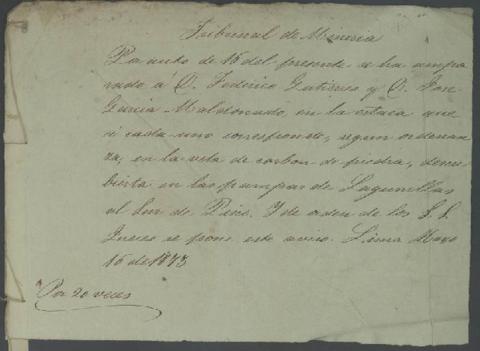 Tribunal de Mineria
Por auto de 15 del presente se ha ampa
rado á D. Federico Gutierres y D. José
Garcia Maldonado, en la estaca que
á cada uno corresponde, segun ordenan
za, en la veta de carbon de piedra, descu
bierta en las pampas de Lagunillas
al Sur de Pisco. Y de orden de los S.S.
Jueces se pone este aviso. Lima Mayo
16 de 1873
Por 20 veces